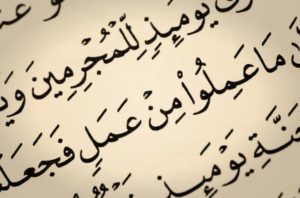 يَوْمَئِذٍ لِّلْمُجْرِمِينَ
مَا عَمِلُوا۟ مِنْ عَمَلٍ فَجَعَلْ
يَوْمَئِذٍ